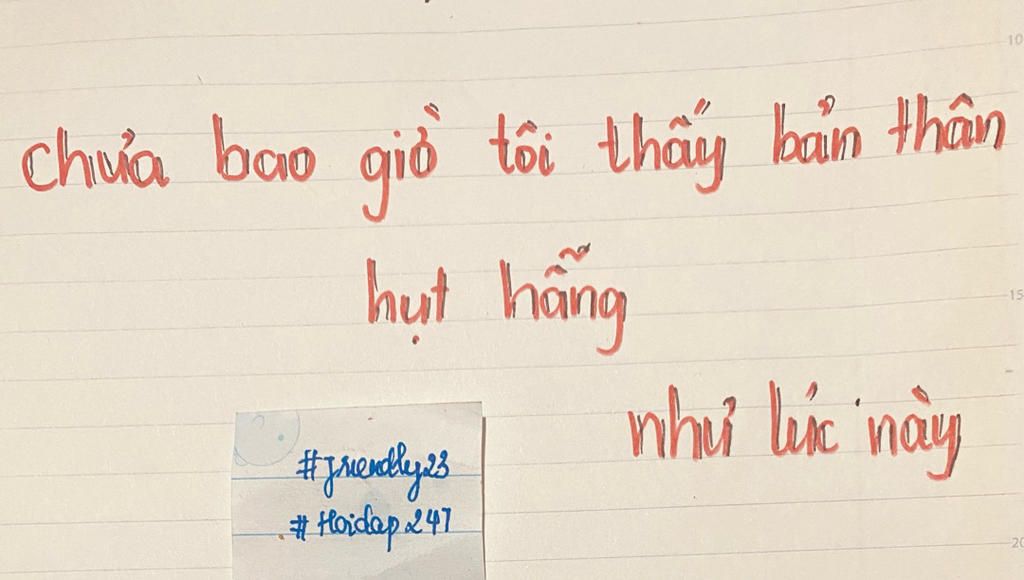 chưa bao giờ tôi thấy bản thân
hụt hẫng
như lúc này
#friendly23
#Hoidap247
10
15
20